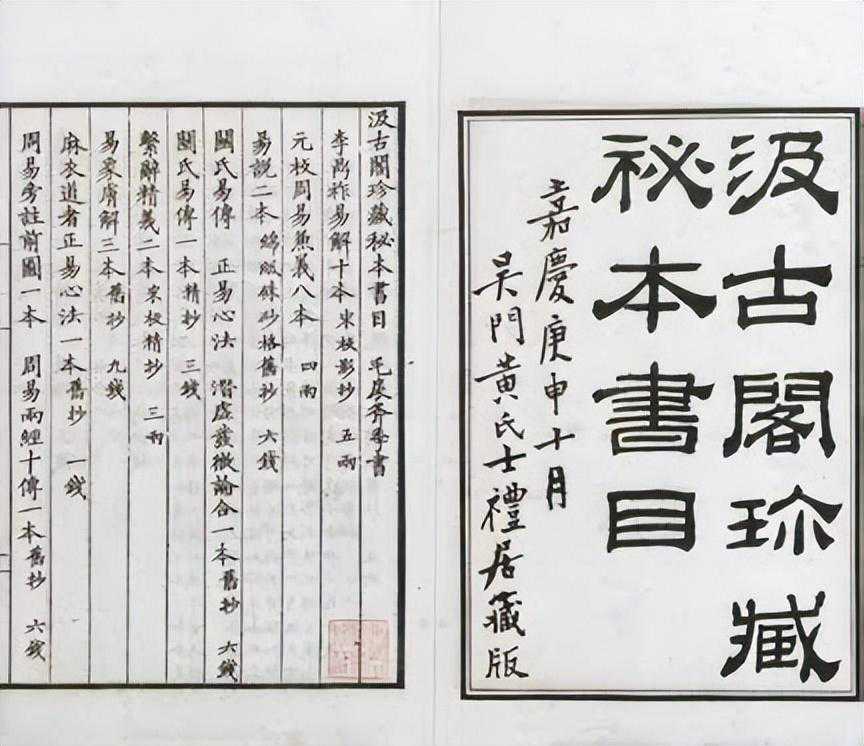 汲古閣珎藏
祕本書目
嘉慶庚申十月
吴門黄氏士禮居藏版
汲古閣珍藏秘本書目 毛扆斧季書
李鼎祚易解十本 宋板影抄 五兩
元板周易兼義八本 四兩
易說二本 綿紙綠砂格舊抄 六錢
關氏易傳 正易心法 潛虛發微論合一本舊抄 六錢
關氏易傳一本精抄 三錢
繫辭精義二本宋板精抄 三兩
易象膚解三本舊抄 九錢
麻衣道者正易心法一本舊抄 一錢
周易旁註前圖一本 周易兩經十傳一本舊抄 六錢